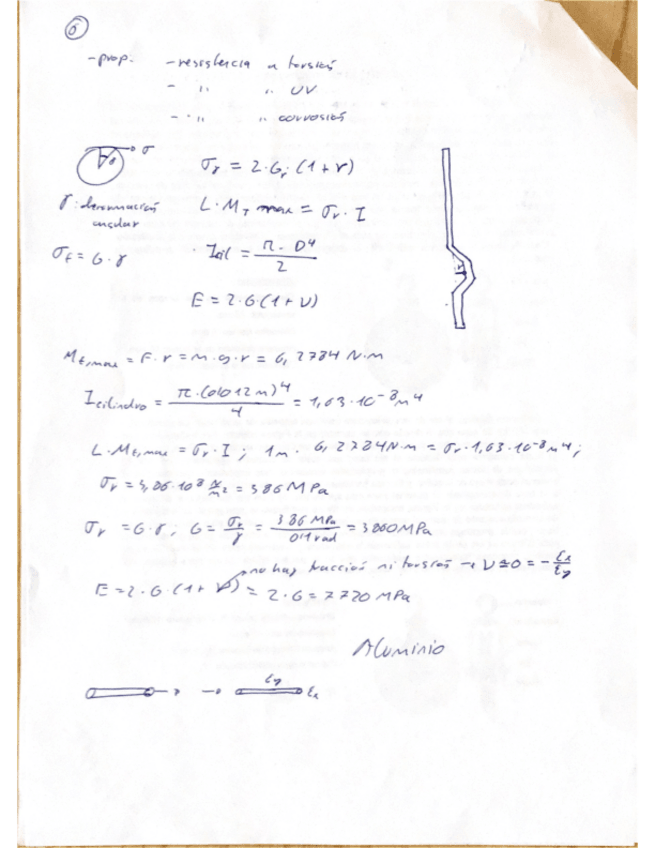 6
-prop. -resistencia a torsión
- " " UV
- " " corrosión
σ
σr = 2·G·(1+γ)
γ: deformación angular
L·MT max = σr·I
σE = G·γ
Icil = π·D⁴/2
E = 2·G(1+ν)
Mt,max = F·r = m·g·r = 6,2784 N·m
Icilindro = π·(0,012m)⁴/4 = 1,63·10⁻⁸m⁴
L·Mt,max = σr·I ; 1m· 6,2784N·m = σr·1,63·10⁻⁸m⁴;
σr = 3,86·10⁸ N/m² = 386MPa
σr = G·γ; G = σr/γ = 386 MPa/0,1rad = 3860MPa
no hay tracción ni torsión → ν≃0 = -εx/εy
E = 2·G·(1+ν) = 2·G = 7720 MPa
Aluminio
εy
εx